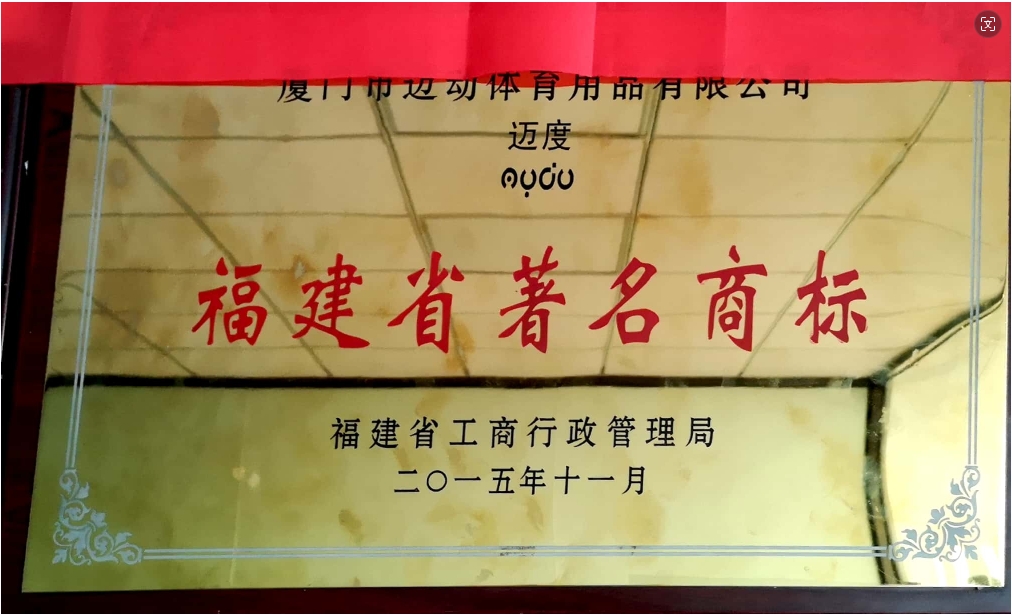 厦门市迈动体育用品有限公司
迈度
福建省著名商标
福建省工商行政管理局
二〇一五年十一月